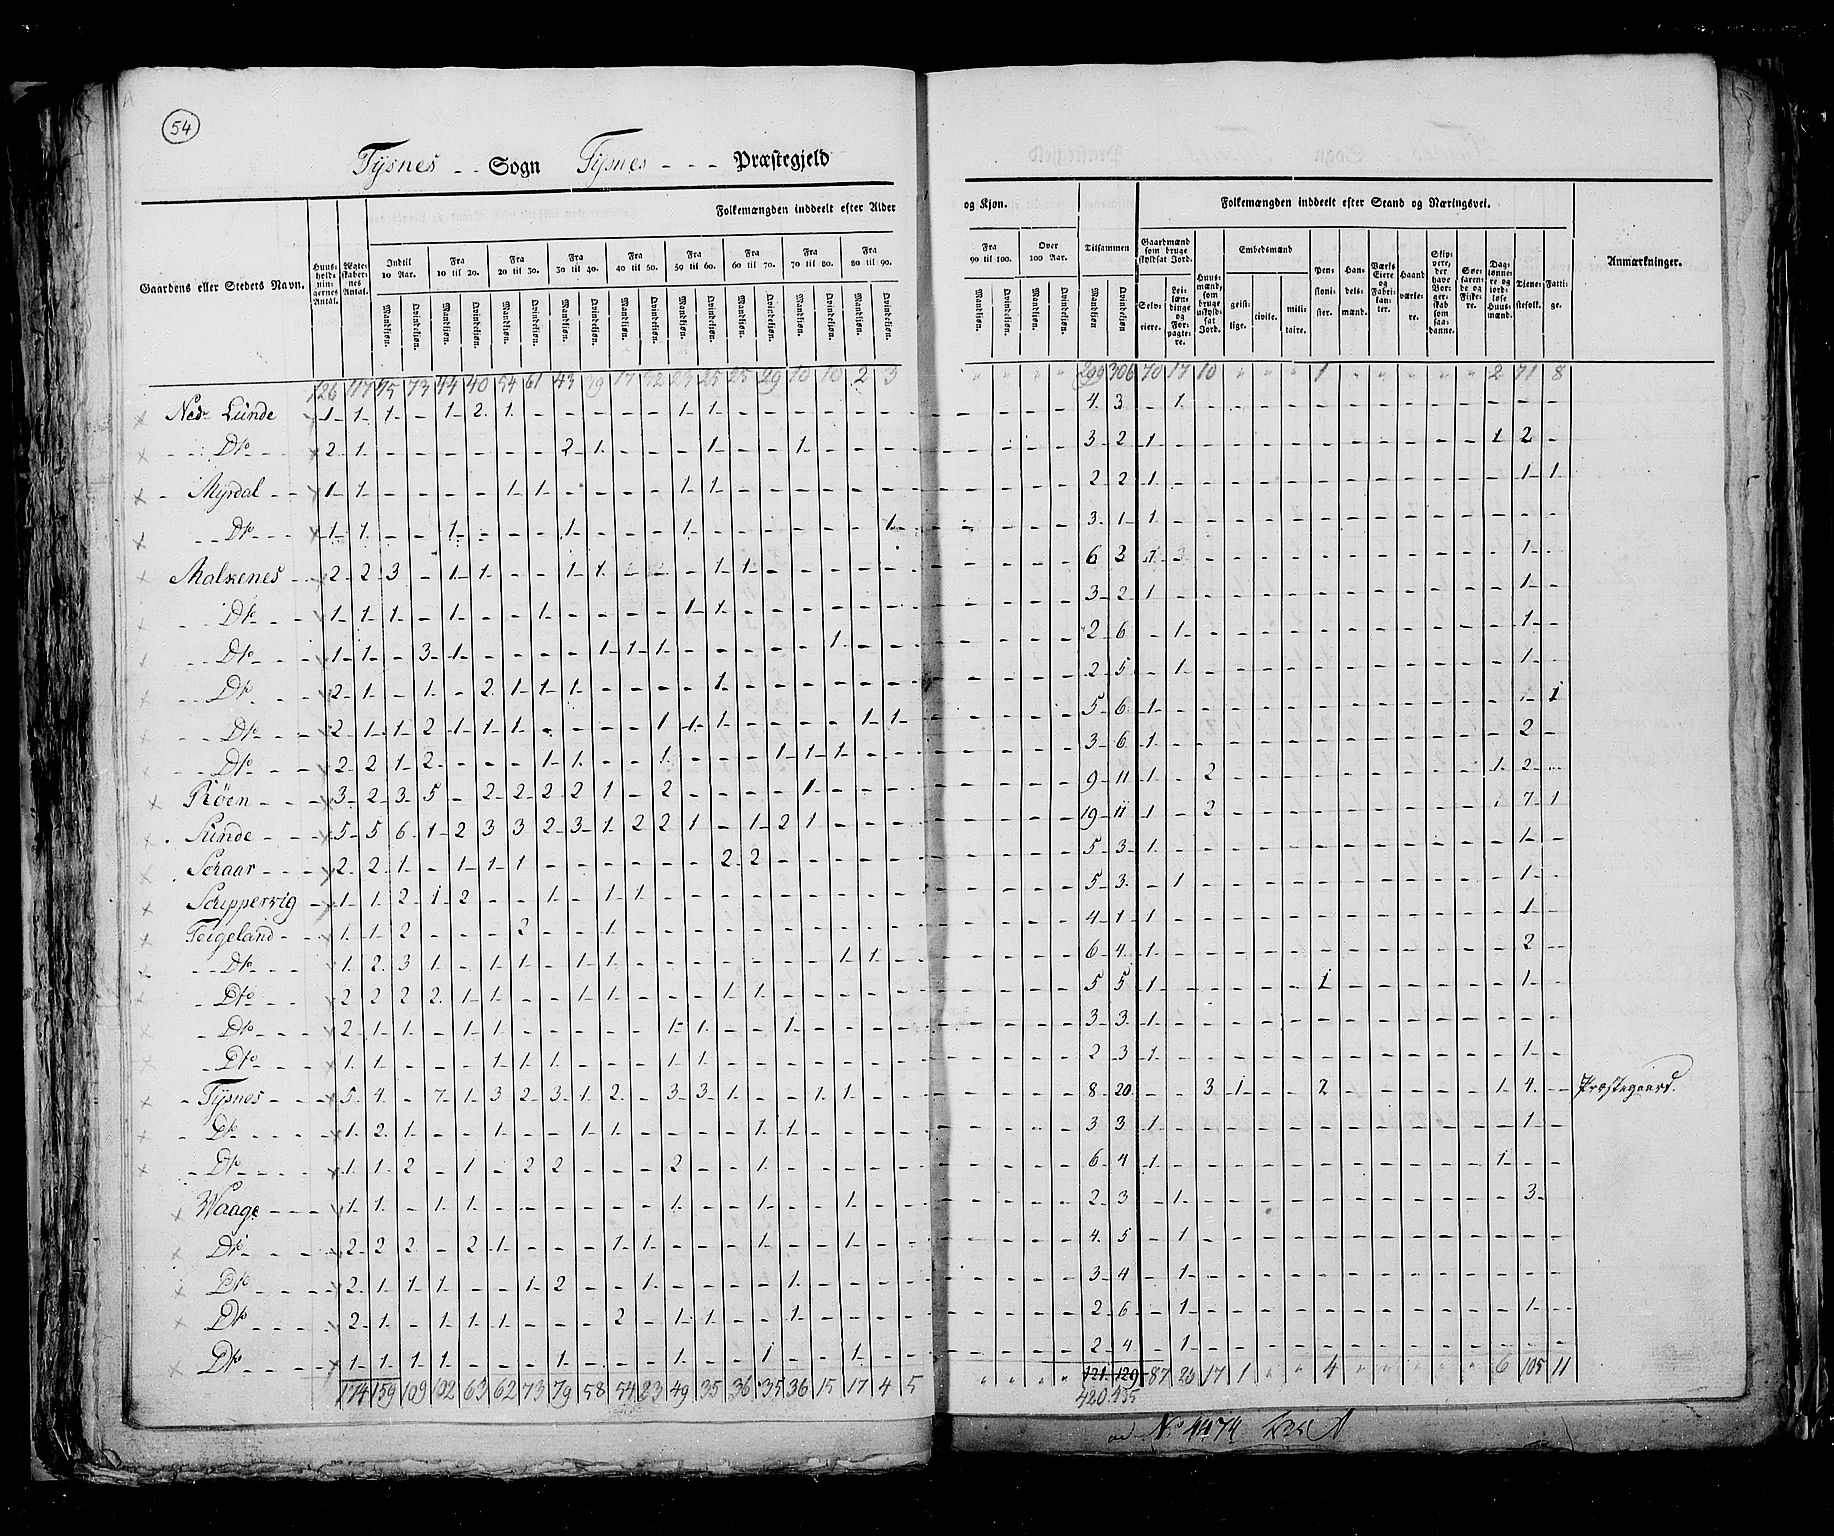 54
Tysnes - - Sogn Tysnes - - - Præstegjeld
Folkemængden inddeelt efter Alder og Kjøn. Tilsammen Folkemængden inddeelt efter Stand og Næringsvei.
Gaardens eller Stedets Navn. Huus-holdningernes Antal. Ægteskabernes Antal. Indtil 10 Aar. Fra 10 til 20. Fra 20 til 30. Fra 30 til 40. Fra 40 til 50. Fra 50 til 60. Fra 60 til 70. Fra 70 til 80. Fra 80 til 90. Fra 90 til 100. Over 100 Aar. Gaardmænd som bruge skyldsat Jord. Huusmænd, som bruge uskyldsat Jord. Embedsmænd Pensionister. Handelsmænd. Værks Eiere og Fabrikanter. Haandværkere. Skippere, der have Borgerskab som saadanne. Søefarende og Fiskere. Daglønnere og jordløse Huusmænd. Tjenestefolk. Fattige. Anmærkninger.
Mandkjøn. Qvindekjøn. Selveiere. Leilændinge og Forpagtere. geistlige. civile. militaire.
126 117 95 73 44 40 54 61 43 39 17 32 23 25 25 29 10 10 2 3 299 306 70 17 10 1 2 71 8
Nedr Lunde 1 1 1 - 1 2 1 - - - - - 1 1 4 3 - 1
Do 2 1 - - - - - - 2 1 - - - 1 - - 1 3 2 1 1 2
Myrdal 1 1 - - - - 1 1 - - - - 1 1 2 2 1 1 1
Do 1 1 - - 1 - - - 1 - - - 1 - - - - - - 1 3 1 1
Malkenes 2 2 3 - 1 1 - - 1 1 1 1 6 1
Do 1 1 1 - 1 - - 1 - - - - 1 1 3 2 1 1
Do 1 1 - 3 1 - - - - 1 1 1 - - - - - 1 2 6 - 1 1
Do 2 1 - 1 - 2 1 1 1 - - - - 1 2 5 - 1 1
Do 2 1 1 2 1 1 1 - - - - 1 1 1 - - - - 1 1 5 6 1 1 1
Do 2 2 1 2 - - - 1 1 - - 1 - - - 1 1 1 3 6 1 2
Röen 3 2 3 5 - 2 2 2 2 1 - 2 - - - - 1 9 11 1 - 2 1 2
Sunde 5 5 6 1 2 3 3 2 3 1 2 2 1 - 1 2 1 19 11 1 - 2 1 7 1
Skaar 2 2 1 - 1 1 1 - - - - - - 2 2 5 3 1 1
Skippervig 1 1 2 1 2 - - 1 - 1 1 5 3 - 1 1
Teigeland 1 1 2 - - - 2 - - 1 4 1 1 1
Do 1 2 3 1 - 1 1 - 1 1 - - - - - - - 1 1 6 4 1 2
Do 2 2 2 2 1 1 - - 1 1 - - - 1 1 5 5 1 1 1
Do 2 1 1 - 1 1 - - - - - 1 1 - - 1 3 3 1
Do 1 1 - - - 1 1 1 - - - 1 1 2 3 1 1
Tysnes 5 4 - 7 1 3 2 3 1 2 - 3 3 1 - - 1 1 8 20 - - 3 1 - - 2 1 4 Præstegaard.
Do 1 2 1 - - 1 - - 1 1 - - - - 1 1 3 3 1 1
Do 1 1 2 - 1 - 2 2 - - - 2 - - 1 6 4 1 1
Waage 1 1 - 1 1 - - - - - - 1 - - 1 - - 1 2 3 - 1 3
Do 2 2 2 - 2 1 - - - 1 1 - - - 1 - - 1 4 5 - 1
Do 2 1 1 1 - - 1 2 - - 1 - - - - 1 3 4 - 1
Do 2 1 - 1 1 1 - - - 2 - 1 1 - - 1 2 6 - 1 1
Do 1 1 1 1 - - - 1 - - - 1 - - 1 - - 1 2 4 - 1
174 159 109 102 63 62 73 79 58 54 23 49 35 36 35 36 15 17 4 5 121 129 87 23 17 1 4 6 105 11
420 435